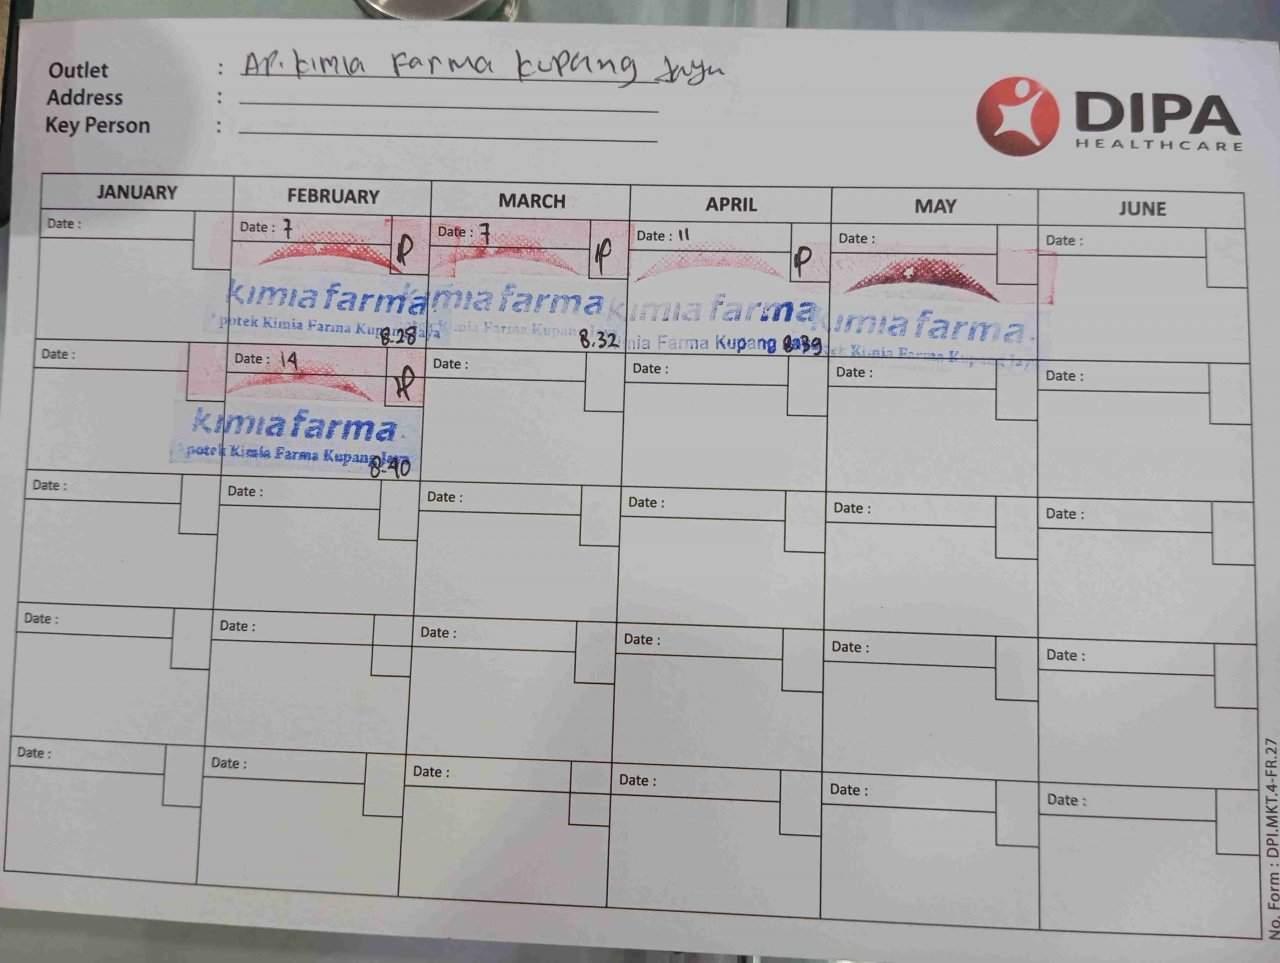 Outlet : AP. Kimia Farma Kupang Jaya
Address :
Key Person :
DIPA
HEALTHCARE
JANUARY FEBRUARY MARCH APRIL MAY JUNE
Date : Date : 7 Date : 7 Date : 11 Date : Date :
kimia farma kimia farma kimia farma kimia farma
potek Kimia Farma Kupang Jaya Kimia Farma Kupang Jaya Kimia Farma Kupang Kimia Farma Kupang Jaya
8.28 8.32 8.39
Date : Date : 14 Date : Date : Date : Date :
kimia farma
potek Kimia Farma Kupang Jaya
8.40
Date : Date : Date : Date : Date : Date :
Date : Date : Date : Date : Date : Date :
Date : Date : Date : Date : Date : Date :
No. Form : DPI.MKT.4-FR.27